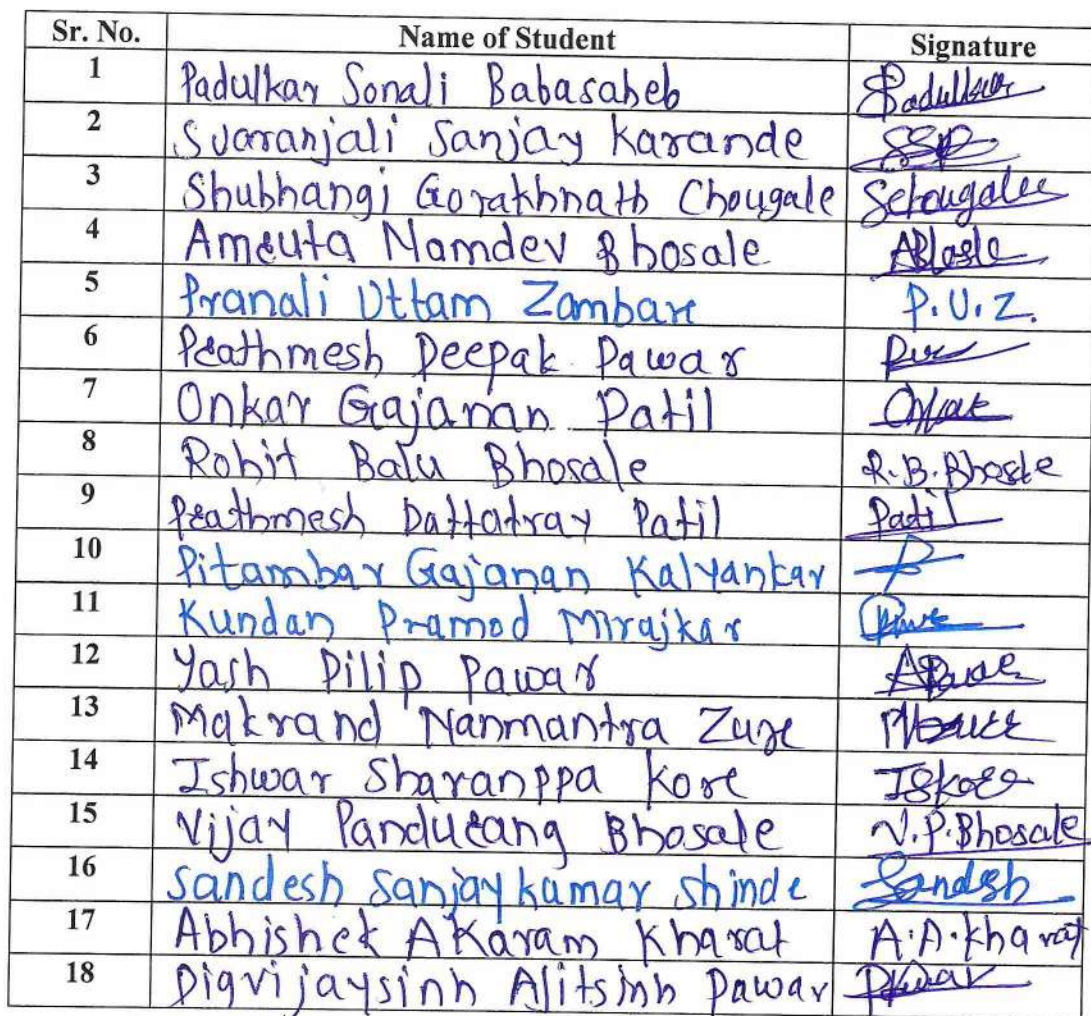 Sr. No. Name of Student Signature
1 Padulkar Sonali Babasaheb Padulkar
2 Svaranjali Sanjay Karande
3 Shubhangi Gorakhnath Chougale SChougale
4 Amruta Namdev Bhosale ABhosle
5 Pranali Uttam Zambare P.U.Z.
6 Prathmesh Deepak Pawar
7 Onkar Gajanan Patil
8 Rohit Balu Bhosale R.B.Bhosle
9 Prathmesh Dattatray Patil Patil
10 Pitambar Gajanan Kalyankar
11 Kundan Pramod Mirajkar
12 Yash Dilip Pawar
13 Makrand Nanmantra Zure
14 Ishwar Sharanppa Kore ISKore
15 Vijay Pandurang Bhosale V.P.Bhosale
16 Sandesh Sanjaykumar Shinde Sandesh
17 Abhishek AKaram Kharat A.A.Kharat
18 Digvijaysinh Ajitsinh Pawar